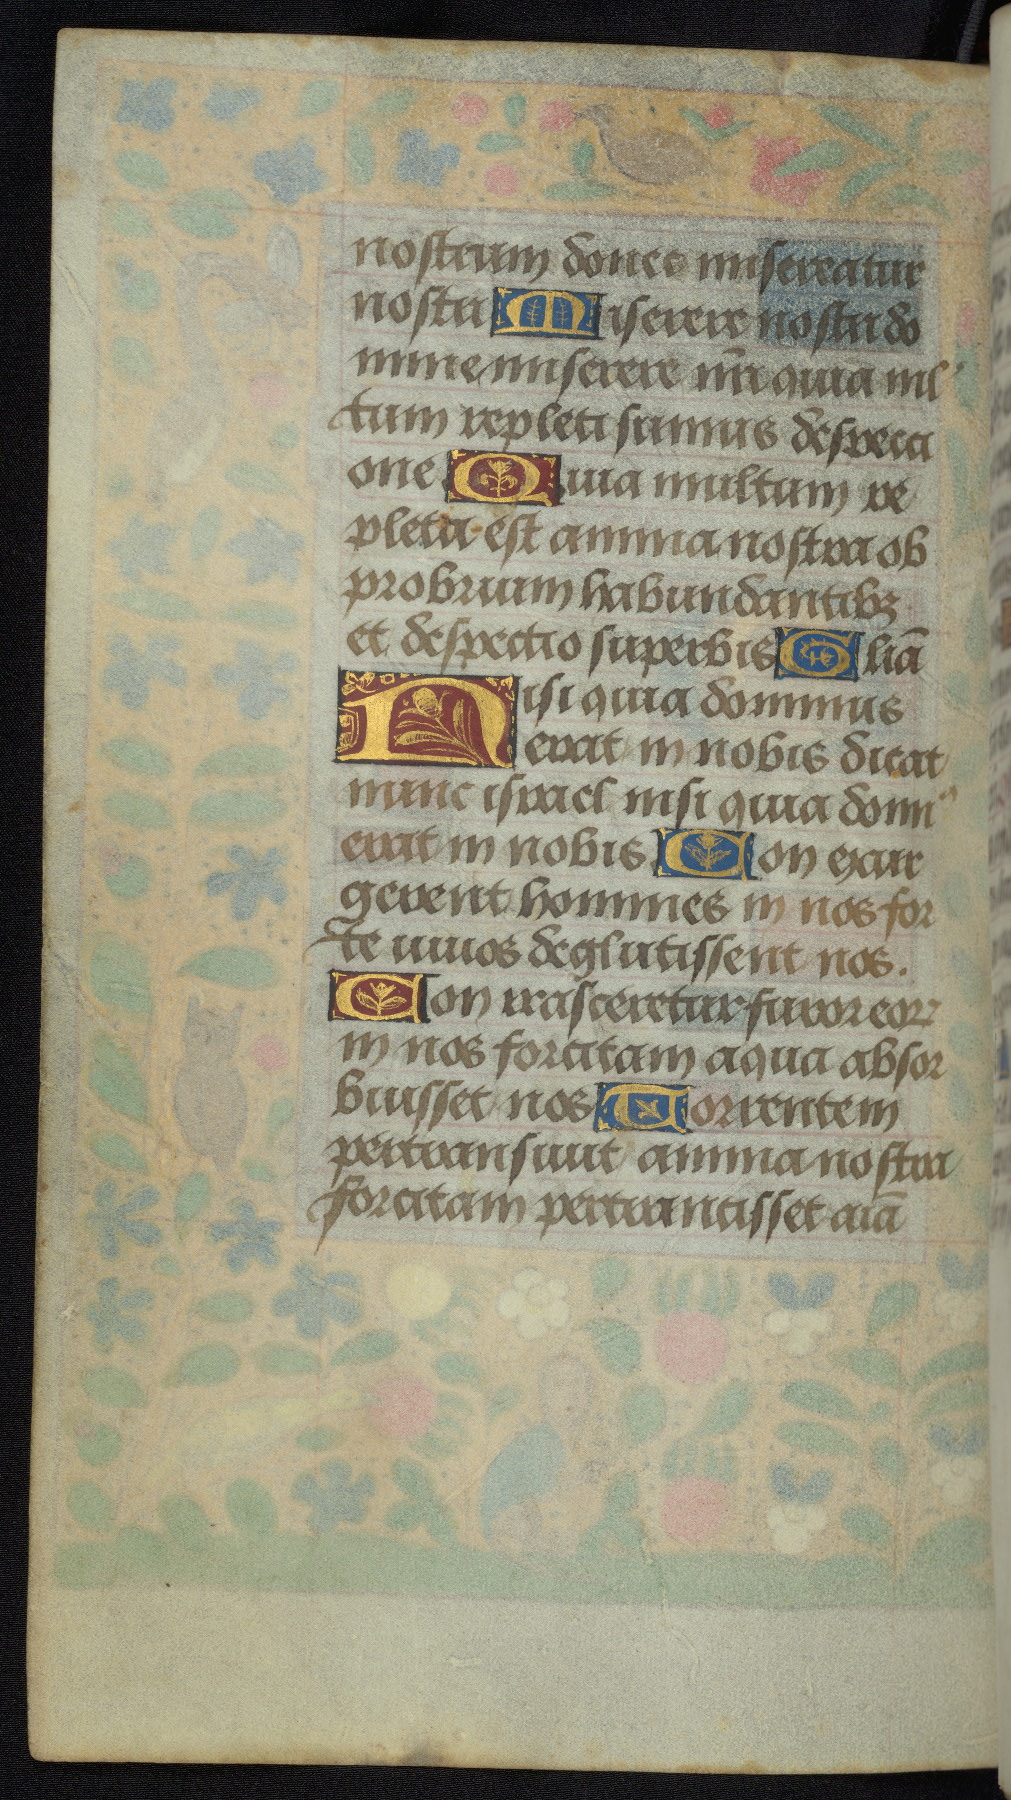 nostrum donec misereatur
nostri Miserere nostri do
mine miserere nr̄i quia ml
tum repleti sumus despecti
one Quia multum re
pleta est anima nostra ob
probrium habundantibꝫ
et despectio superbis Gl̄ia
Nisi quia dominus
erat in nobis dicat
nunc israel nisi quia domi
erat in nobis Con exur
gerent homines in nos for
te uiuos deglutissent nos.
Con irasceretur furor eoꝝ
in nos forcitam aqua absor
buisset nos Torrentem
pertransiuit anima nostra
forcitam pertrancisset aīa